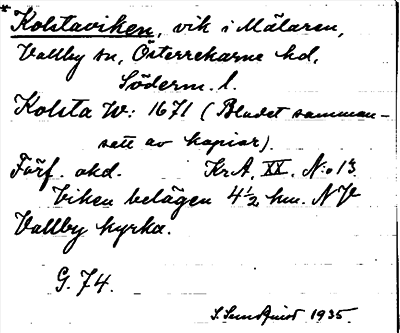 *Kolstaviken, vik i Mälaren,
Vallby sn, Österrekarne hd,
Söderm. l.
Kolsta W: 1671 (Bladet samman-
satt av kopior).
Förf. okd. KrA. XX. N:o 13.
Viken belägen 4½ km. NV
Vallby kyrka.
G. 74.
S. Sundquist 1935.